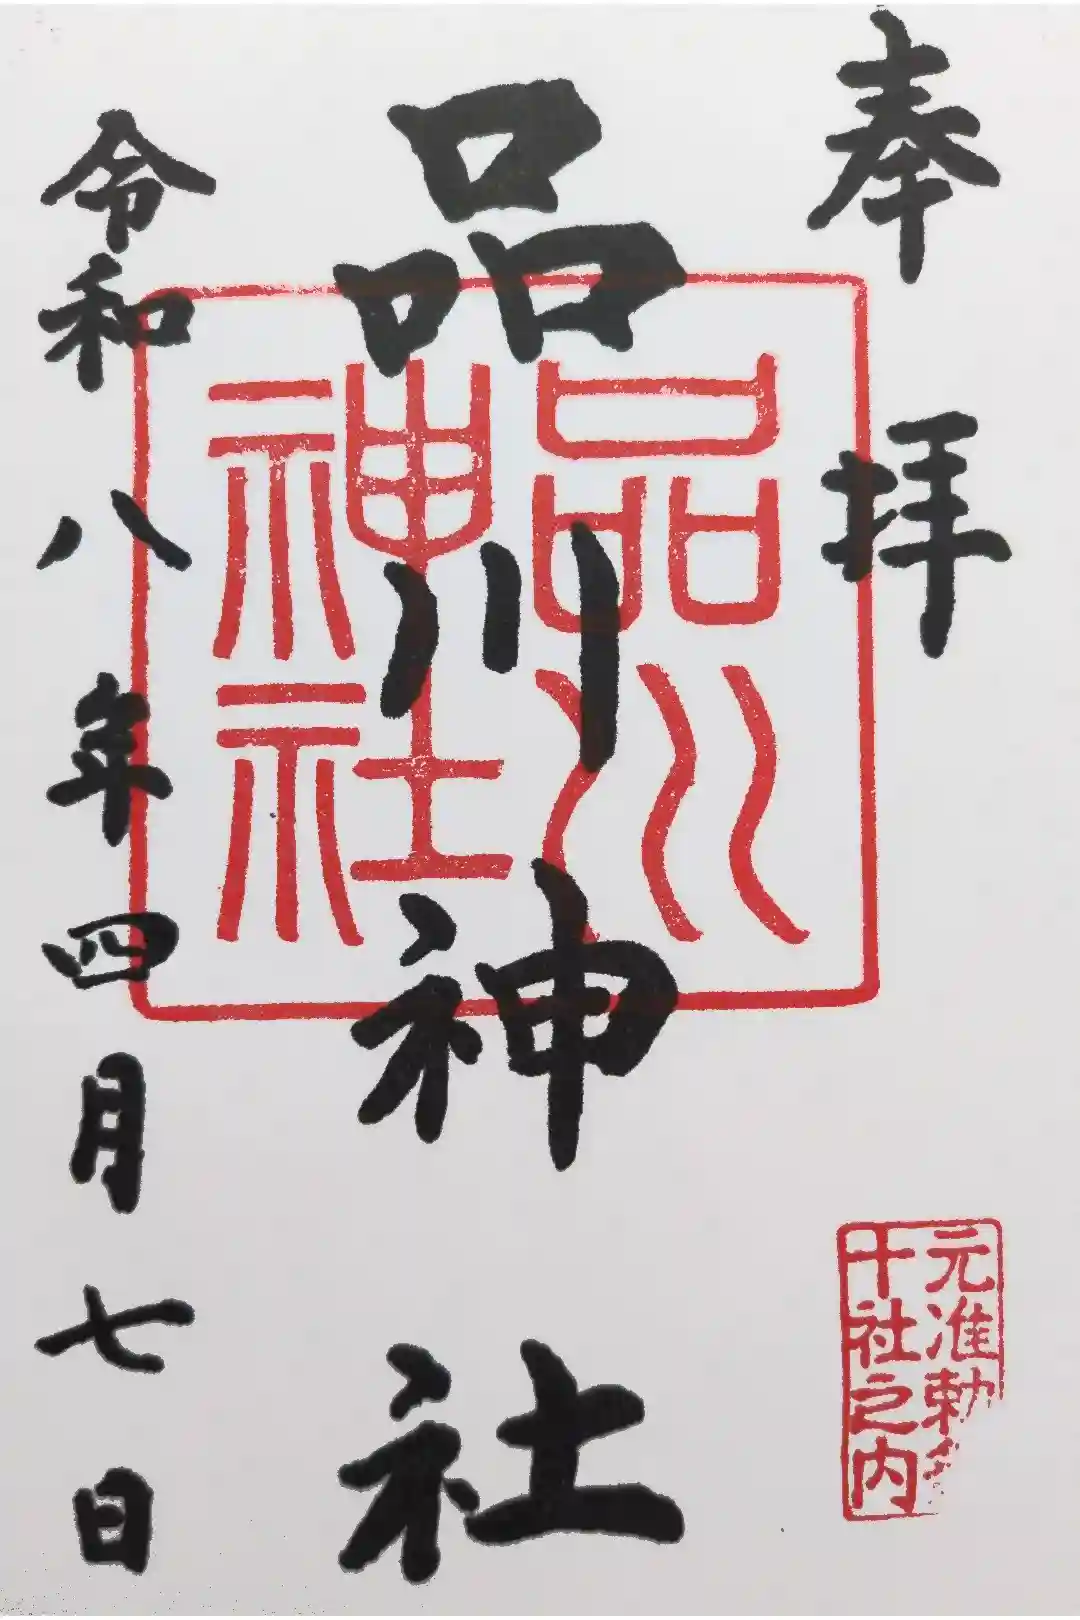 奉拝
元准勅
十社之内
品川神社
品川
神社
令和八年四月七日